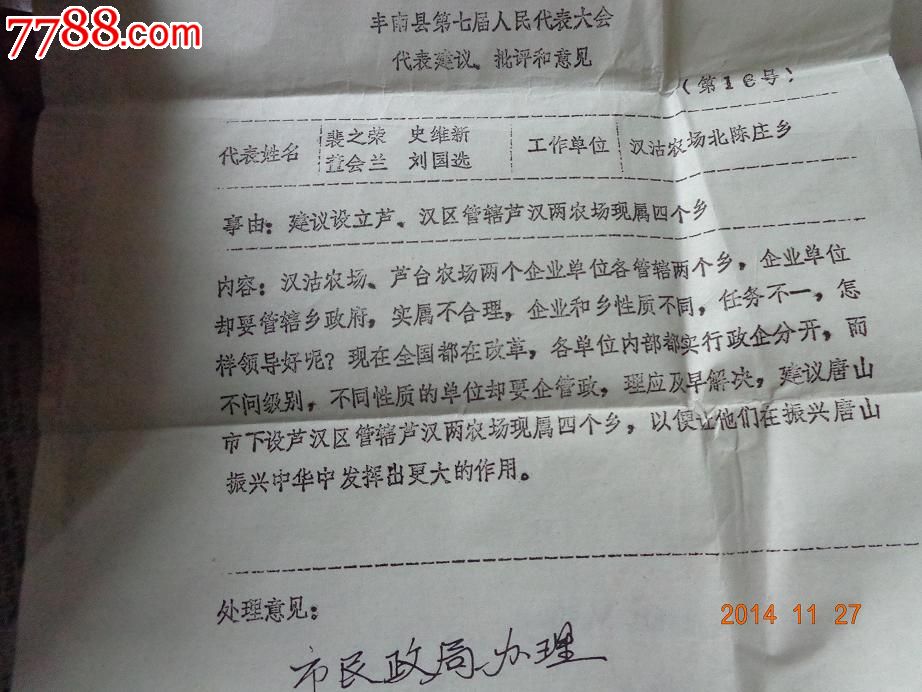 7788.com
中国收藏热线
丰南县第七届人民代表大会
代表建议、批评和意见
（第16号）
代表姓名 裴之荣 史维新 董会兰 刘国选 工作单位 汉沽农场北陈庄乡
事由：建议设立芦、汉区管辖芦汉两农场现属四个乡
内容：汉沽农场、芦台农场两个企业单位各管辖两个乡，企业单位
却要管辖乡政府，实属不合理，企业和乡性质不同，任务不一，怎
样领导好呢？现在全国都在改革，各单位内部都实行政企分开，而
不问级别，不同性质的单位却要企管政，理应及早解决，建议唐山
市下设芦汉区管辖芦汉两农场现属四个乡，以便让他们在振兴唐山
振兴中华中发挥出更大的作用。
处理意见：
2014 11 27
市民政局办理